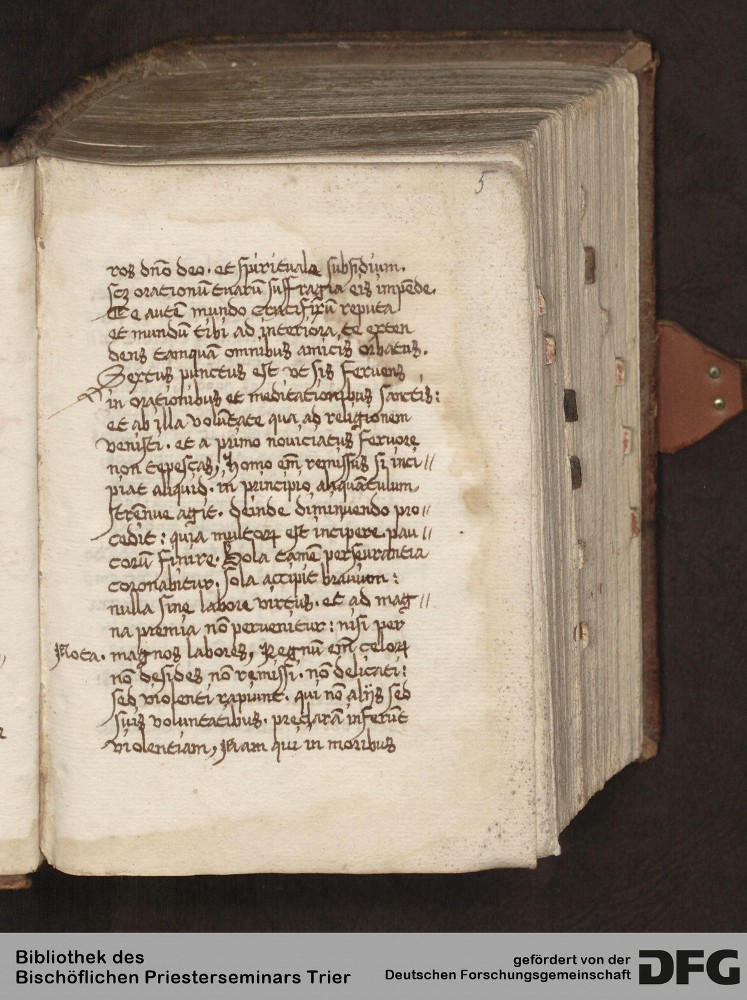 5
ros dnō deo. et spirituale subsidium.
scz orationū tuarū suffragia eis impēde.
Te autē mundo crucifixū reputa
et mundū tibi ad interiora te exten
dens tamquā omnibus amicis orbatus.
Sextus punctus est vt sis feruens
in orationibus et meditationibus sanctis:
et ab illa volūtate qua ad religionem
venisti. et a primo nouiciatus feruore
non tepescas, Homo em̄ remissus si inci//
piat aliquid. in principio aliquātulum
strēnue agit. deinde diminuendo pro//
cedit: quia multoꝝ est incipere pau//
corū finire. Sola tamē perseurantia
coronabitur. sola accipit brauium:
nulla sine labore virtus. et ad mag//
na premia nō peruenitur: nisi per
Nota. magnos labores, Regnū em̄ celoꝝ
nō desides nō remissi. nō delicati:
sed violenti rapiunt. qui nō alijs sed
suis voluntatibus. preclarā inferūt
violentiam, Nam qui in moribus
Bibliothek des
Bischöflichen Priesterseminars Trier
gefördert von der
Deutschen Forschungsgemeinschaft
DFG